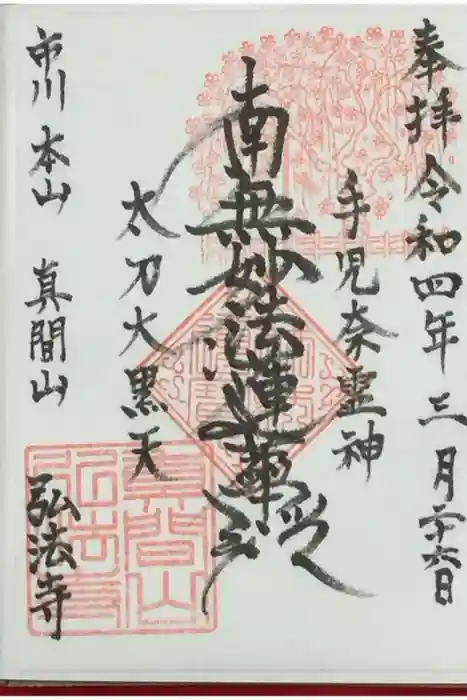 奉拝 令和四年三月二十六日
手児奈霊神
南無妙法蓮華経
太刀大黒天
市川 本山 真間山
弘法寺
真間山
弘法寺